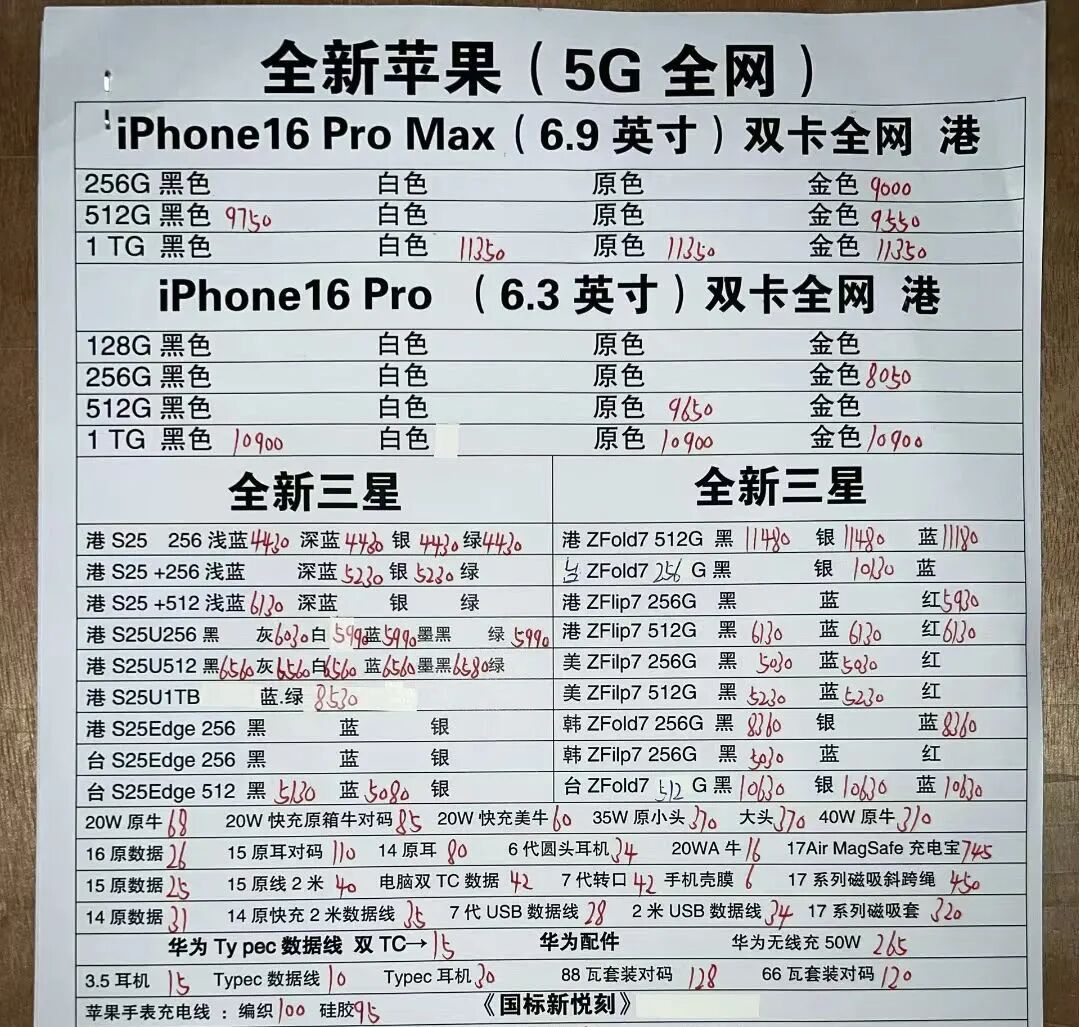 全新苹果（5G 全网）
iPhone16 Pro Max（6.9 英寸）双卡全网 港
256G 黑色 白色 原色 金色 9000
512G 黑色 9750 白色 原色 金色 9550
1 TG 黑色 白色 11350 原色 11350 金色 11350
iPhone16 Pro （6.3 英寸）双卡全网 港
128G 黑色 白色 原色 金色
256G 黑色 白色 原色 金色 8050
512G 黑色 白色 原色 9650 金色
1 TG 黑色 10900 白色 原色 10900 金色 10900
全新三星
港 S25 256 浅蓝 4430 深蓝 4430 银 4430 绿 4430
港 S25 +256 浅蓝 深蓝 5230 银 5230 绿
港 S25 +512 浅蓝 6130 深蓝 银 绿
港 S25U256 黑 灰 6030 白 5990 蓝 5990 墨黑 绿 5990
港 S25U512 黑 6560 灰 6560 白 6560 蓝 6560 墨黑 6580 绿
港 S25U1TB 蓝.绿 8530
港 S25Edge 256 黑 蓝 银
台 S25Edge 256 黑 蓝 银
台 S25Edge 512 黑 5130 蓝 5080 银
全新三星
港 ZFold7 512G 黑 11480 银 11480 蓝 11180
ZFold7 256 G 黑 银 10130 蓝
港 ZFlip7 256G 黑 蓝 红 5930
港 ZFlip7 512G 黑 6130 蓝 6130 红 6130
美 ZFilp7 256G 黑 5030 蓝 5030 红
美 ZFilp7 512G 黑 5230 蓝 5230 红
韩 ZFold7 256G 黑 8360 银 蓝 8360
韩 ZFilp7 256G 黑 5030 蓝 红
台 ZFold7 512 G 黑 10630 银 10630 蓝 10630
20W 原牛 68 20W 快充原箱牛对码 85 20W 快充美牛 60 35W 原小头 370 大头 370 40W 原牛 310
16 原数据 26 15 原耳对码 110 14 原耳 80 6 代圆头耳机 34 20WA 牛 16 17Air MagSafe 充电宝 745
15 原数据 25 15 原线 2 米 40 电脑双 TC 数据 42 7 代转口 42 手机壳膜 6 17 系列磁吸斜跨绳 450
14 原数据 31 14 原快充 2 米数据线 35 7 代 USB 数据线 28 2 米 USB 数据线 34 17 系列磁吸套 320
华为 Ty pec 数据线 双 TC→ 15 华为配件 华为无线充 50W 265
3.5 耳机 15 Typec 数据线 10 Typec 耳机 30 88 瓦套装对码 128 66 瓦套装对码 120
苹果手表充电线 : 编织 100 硅胶 95 《国标新悦刻》